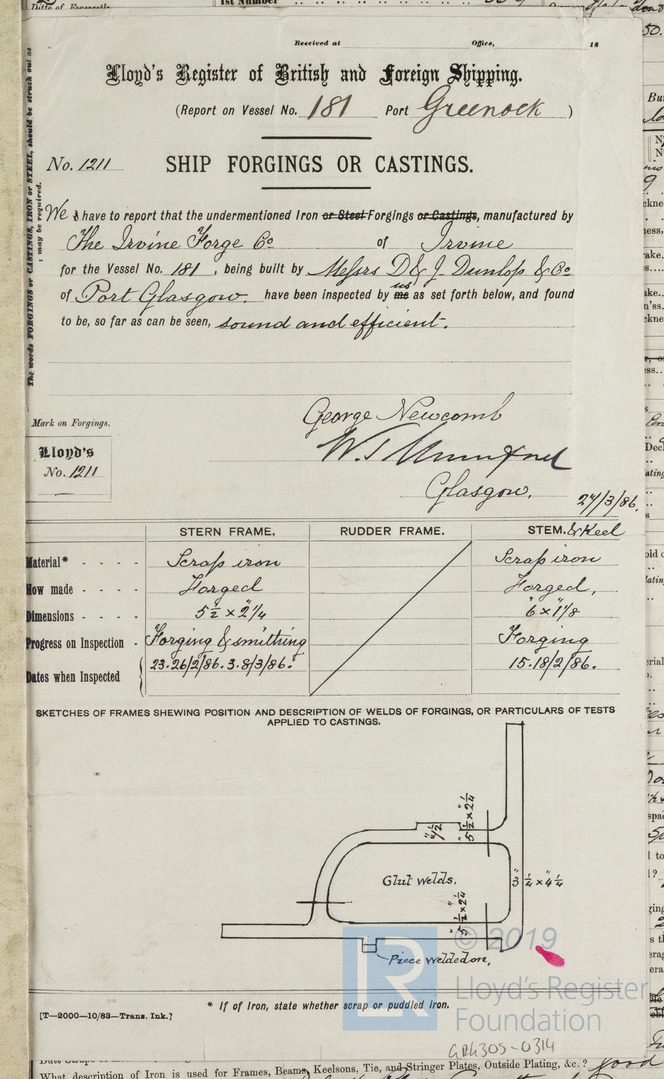 1st Number
Received at Office, 18
Lloyd's Register of British and Foreign Shipping.
(Report on Vessel No. 181 Port Greenock )
No. 1211 SHIP FORGINGS OR CASTINGS.
We I have to report that the undermentioned Iron or Steel Forgings or Castings, manufactured by
The Irvine Forge Co of Irvine
for the Vessel No. 181, being built by Messrs D & J. Dunlop & Co
of Port Glasgow. have been inspected by me us as set forth below, and found
to be, so far as can be seen, sound and efficient.
The words FORGINGS or CASTINGS, IRON or STEEL, should be struck out as
may be required.
George Newcomb
Mark on Forgings.
Lloyd's
No. 1211
Glasgow. 24/3/86.
STERN FRAME. RUDDER FRAME. STEM. & Keel
Material* - - - - Scrap iron Scrap iron
How made - - - - Forged Forged,
Dimensions - - - - 5½" × 2¼" 6" × 1⅛"
Progress on Inspection - Forging & smithing Forging
Dates when Inspected 23.26/2/86. 3.8/3/86. 15.18/2/86.
SKETCHES OF FRAMES SHEWING POSITION AND DESCRIPTION OF WELDS OF FORGINGS, OR PARTICULARS OF TESTS
APPLIED TO CASTINGS.
5½" × 2¼"
Glut Welds.
3¼" × 4¼"
5½" × 2¼"
Piece Welded on,
© 2019
Lloyd's Register
Foundation
* If of Iron, state whether scrap or puddled iron.
[T—2000—10/83—Trans. Ink.]
GRK305-0314
What description of Iron is used for Frames, Beams, Keelsons, Tie, and Stringer Plates, Outside Plating, &c. ? good